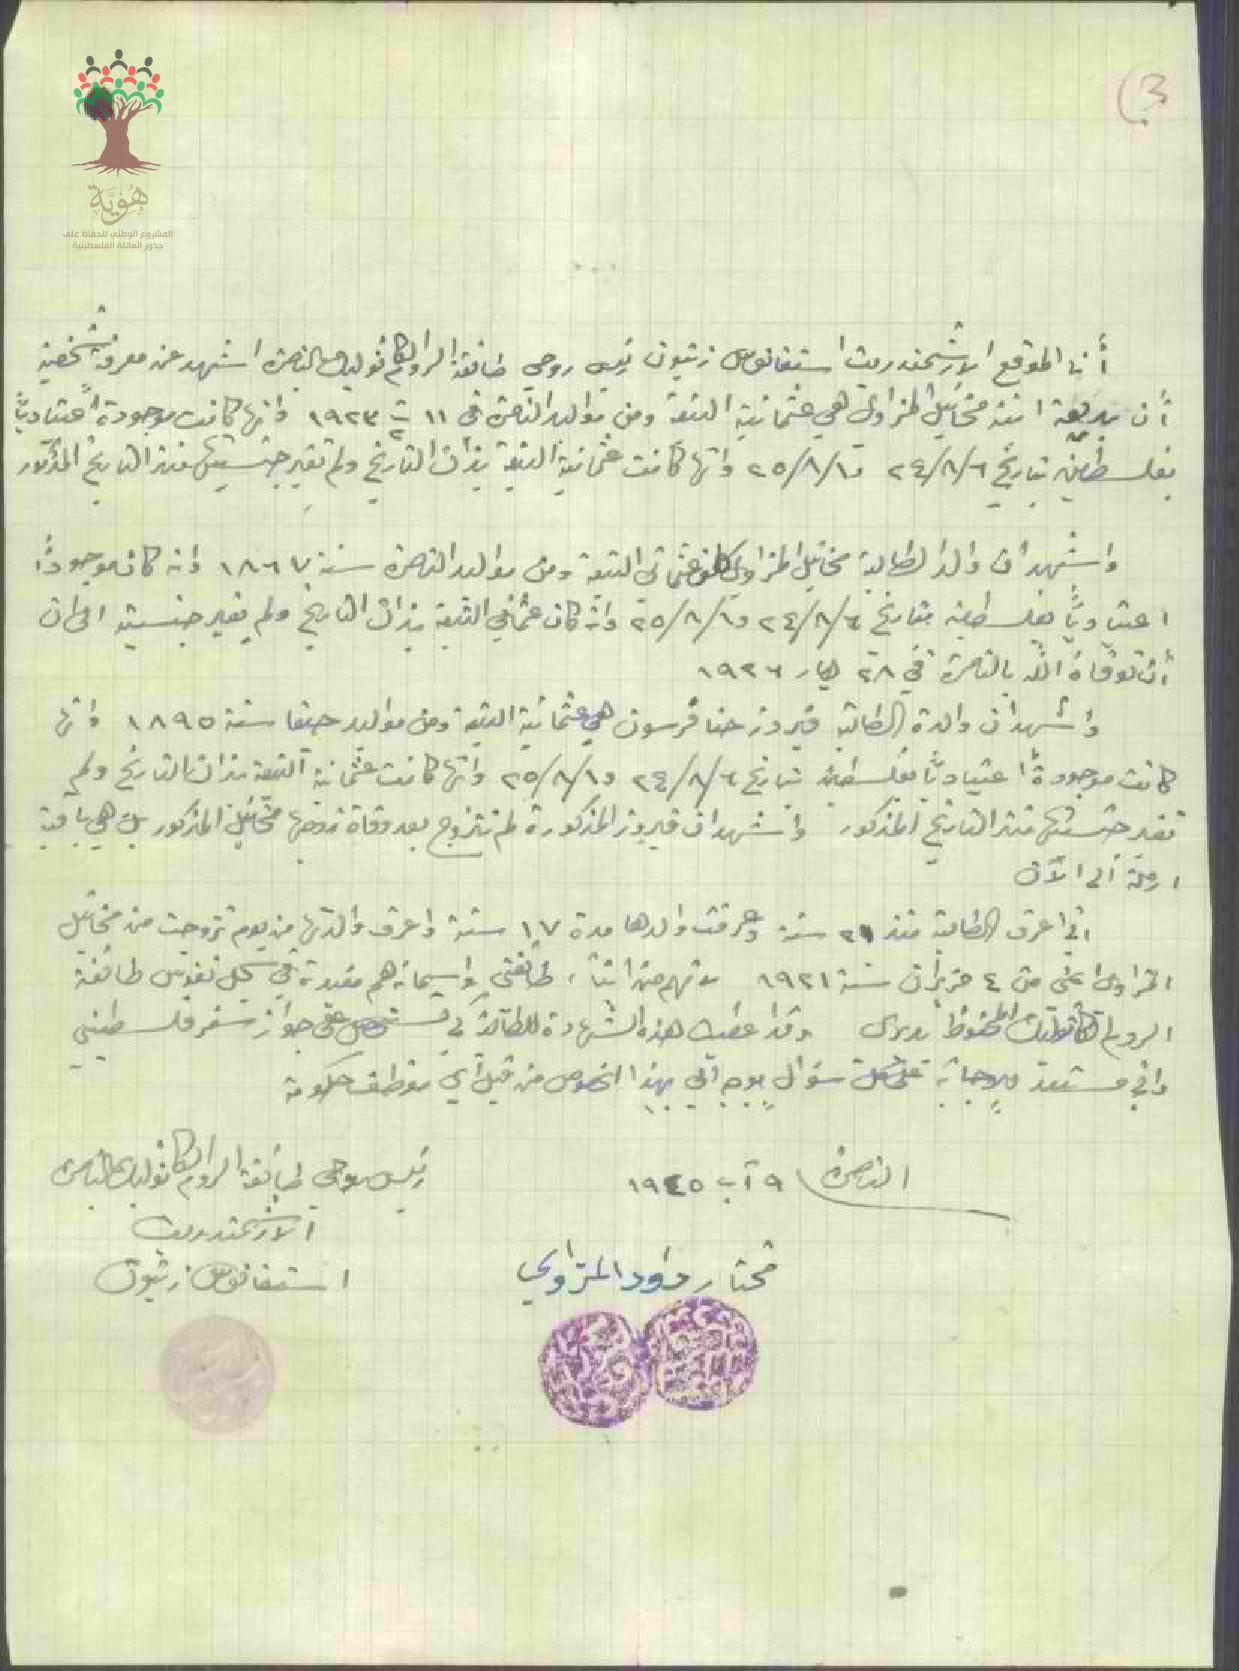 3)
هُوِيَّة
المشروع الوطني للحفاظ على
جذور العائلة الفلسطينية
أنا الموقع الارشمندريت استفانوس زتيون رئيس روحي طائفة الروم الكاثوليك بالناصرة اشهد عن معرفة شخصية
أن بديعة ابنة مخائيل المزاوي هي عثمانية التبعة ومن مواليد الناصرة في ١١ ت٢ ١٩٢٣ وانها كانت موجودة اعتياديًا
بفلسطين بتاريخ ٢٤/٨/٦ و ٢٥/٨/١ وانها كانت عثمانية التبعة بذات التاريخ ولم تغير جنسيتها منذ التاريخ المذكور
واشهد ان والد الطالبة مخائيل المزاوي كان عثماني التبعة ومن مواليد الناصرة سنة ١٨٦٧ وانه كان موجودًا
اعتياديًا بفلسطين بتاريخ ٢٤/٨/٦ و ٢٥/٨/١ وانه كان عثماني التبعة بذات التاريخ ولم يغير جنسيته الى ان
أن توفاه الله بالناصرة في ٢٨ ايار ١٩٣٦
واشهد ان والدة الطالبة فيروز حنا فرسون هي عثمانية التبعة ومن مواليد حيفا سنة ١٨٩٥ وانها
كانت موجودة اعتياديًا بفلسطين بتاريخ ٢٤/٨/٦ و ٢٥/٨/١ وانها كانت عثمانية التبعة بذات التاريخ ولم
تغير جنسيتها منذ التاريخ المذكور واشهد ان فيروز المذكورة لم تتزوج بعد وفاة زوجها مخائيل المذكور بل هي باقية
ارملة الى الآن
اني اعرف الطالبة منذ ٢١ سنة وعرفت والدها مدة ١٧ سنة واعرف والدتها من يوم تزوجت من مخائيل
المزاوي اعني من ٤ حزيران سنة ١٩٢١ لانهم من ابناء طائفتي واسماءهم مقيدة في سجل نفوس طائفة
الروم الكاثوليك المحفوظ لدي وقد اعطيت هذه الشهادة للطالبة كي تستحصل على جواز سفر فلسطيني
واني مستعد للاجابة على كل سؤال يوجه الي بهذا الخصوص من قبل أي موظف حكومة
الناصرة ٩ آب ١٩٤٥
رئيس روحي طائفة الروم الكاثوليك بالناصرة
الارشمندريت
استفانوس زتيون
مختار داود المزاوي